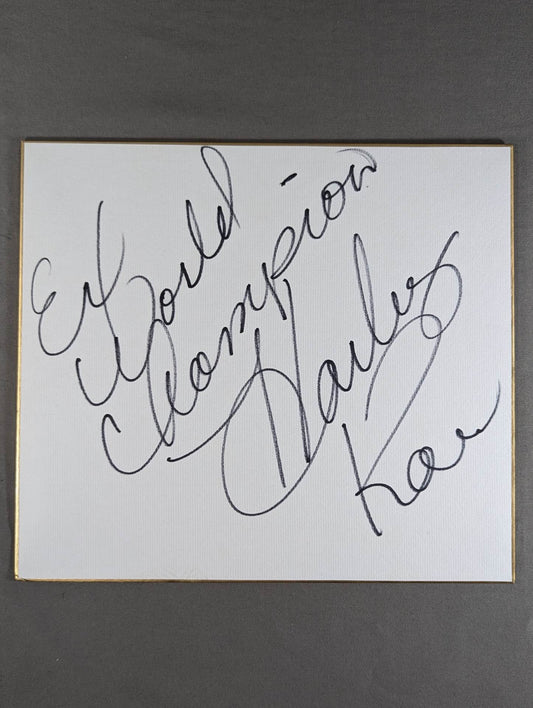 Ex World
Champion
Harley
Race